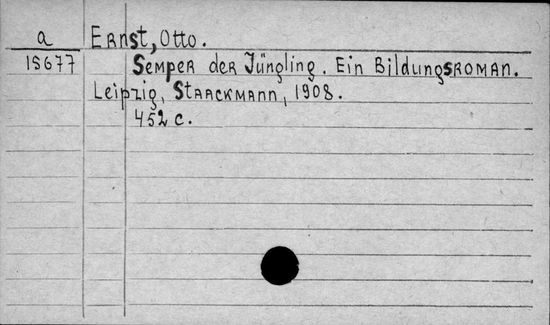 a Ernst, Otto.
15677 Semper der Jüngling. Ein Bildungsroman.
Leipzig, Staackmann, 1908.
452 c.